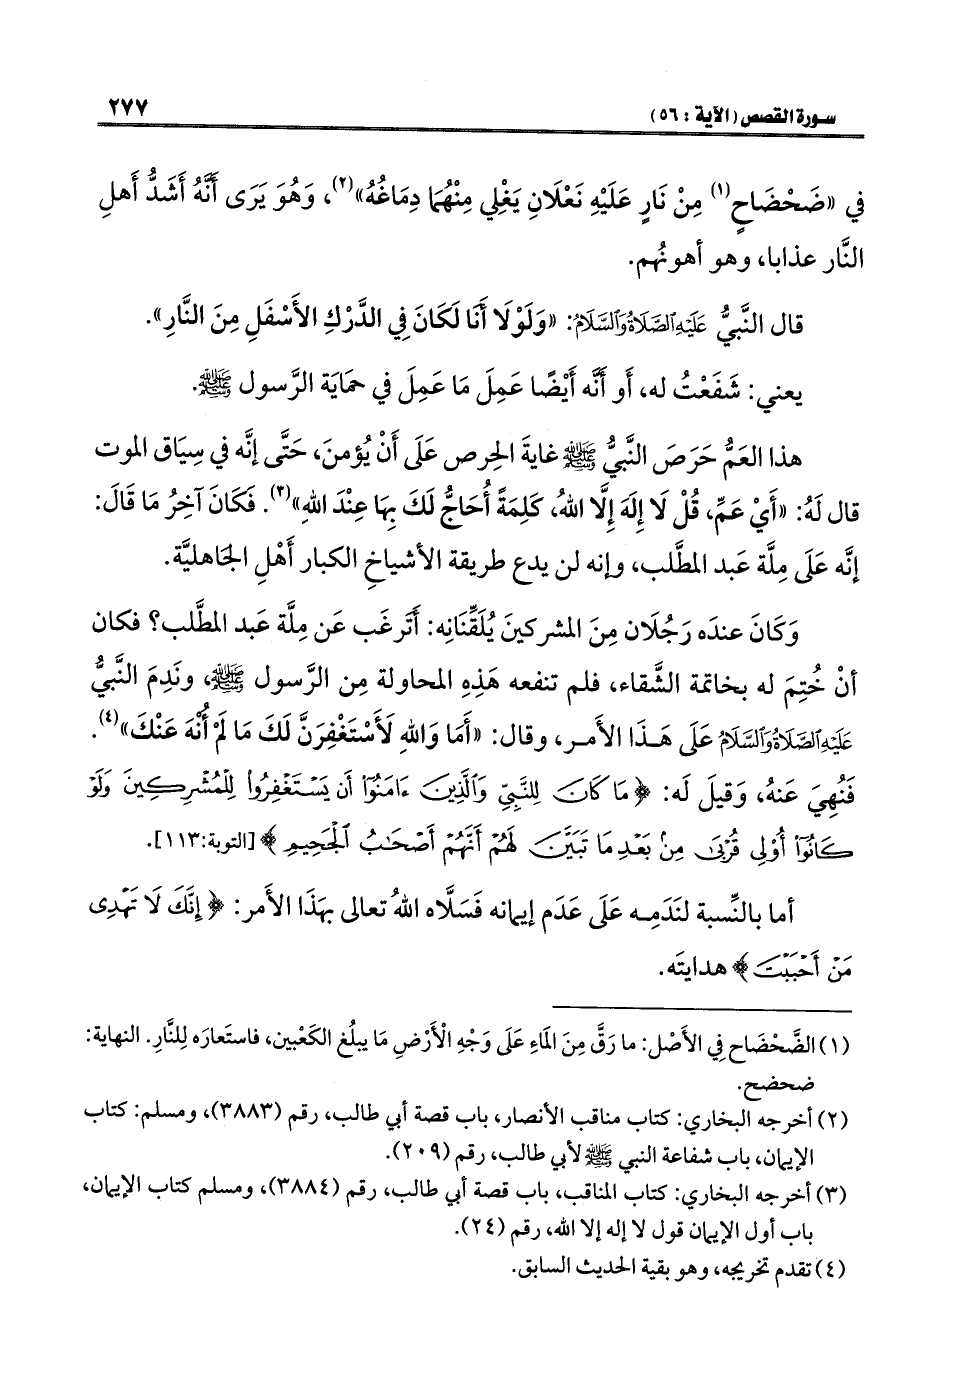 سورة القصص (الآية : ٥٦)
٢٧٧
في «ضَحْضَاحٍ(١) مِنْ نَارٍ عَلَيْهِ نَعْلَانِ يَغْلِي مِنْهُمَا دِمَاغُهُ»(٢)، وَهُوَ يَرَى أَنَّهُ أَشَدُّ أَهلِ
النَّار عذابا، وهو أهونُهم.
قال النَّبيُّ عَلَيْهِ الصَّلَاةُ وَالسَّلَامُ: «وَلَوْلَا أَنَا لَكَانَ فِي الدَّرْكِ الأَسْفَلِ مِنَ النَّارِ».
يعني: شَفَعْتُ له، أَو أَنَّه أَيْضًا عَمِلَ مَا عَمِلَ في حمَايَة الرَّسول ﷺ.
هذا العَمُّ حَرَصَ النَّبيُّ ﷺ غايةَ الحِرص عَلَى أَنْ يُؤمنَ، حَتَّى إنَّه في سِيَاق الموت
قال لَهُ: «أَيْ عَمِّ، قُلْ لَا إِلَهَ إِلَّا اللهُ، كَلِمَةً أُحَاجُّ لَكَ بِهَا عِنْدَ اللهِ»(٣). فَكَانَ آخِرُ مَا قَالَ:
إنَّه عَلَى مِلَّة عَبد المطَّلب، وإنه لن يدع طريقة الأشياخ الكبار أَهْلِ الجَاهليَّة.
وَكَانَ عندَه رَجُلَان مِنَ المشركينَ يُلَقِّنَانِه: أَتَرغَب عَن مِلَّة عَبد المطَّلب؟ فكان
أنْ خُتِمَ له بخاتمة الشَّقاء، فلم تنفعه هَذِهِ المحاولة مِن الرَّسول ﷺ، ونَدِمَ النَّبيُّ
عَلَيْهِ الصَّلَاةُ وَالسَّلَامُ عَلَى هَـذَا الأَمـر، وقال: «أَمَا وَاللهِ لَأَسْتَغْفِرَنَّ لَكَ مَا لَمْ أُنْهَ عَنْكَ»(٤).
فَنُهِيَ عَنهُ، وَقيلَ لَه: ﴿مَا كَانَ لِلنَّبِيِّ وَٱلَّذِينَ ءَامَنُوٓا۟ أَن يَسْتَغْفِرُوا۟ لِلْمُشْرِكِينَ وَلَوْ
كَانُوٓا۟ أُو۟لِى قُرْبَىٰ مِنۢ بَعْدِ مَا تَبَيَّنَ لَهُمْ أَنَّهُمْ أَصْحَٰبُ ٱلْجَحِيمِ﴾ [التوبة:١١٣].
أما بالنِّسبة لنَدَمِـه عَلَى عَدَم إيمانه فَسَلَّاه اللهُ تعالى بهَذَا الأَمر: ﴿إِنَّكَ لَا تَهْدِى
مَنْ أَحْبَبْتَ﴾ هدايتَه.
(١) الضَّحْضَاح فِي الأَصْل: ما رَقَّ مِنَ المَاءِ عَلَى وَجْهِ الْأَرْضِ مَا يبلُغ الكَعْبين، فاستَعارَه لِلنَّارِ. النهاية:
ضحضح.
(٢) أخرجه البخاري: كتاب مناقب الأنصار، باب قصة أبي طالب، رقم (٣٨٨٣)، ومسلم: كتاب
الإيمان، باب شفاعة النبي ﷺ لأبي طالب، رقم (٢٠٩).
(٣) أخرجه البخاري: كتاب المناقب، باب قصة أبي طالب، رقم (٣٨٨٤)، ومسلم كتاب الإيمان،
باب أول الإيمان قول لا إله إلا الله، رقم (٢٤).
(٤) تقدم تخريجه، وهو بقية الحديث السابق.